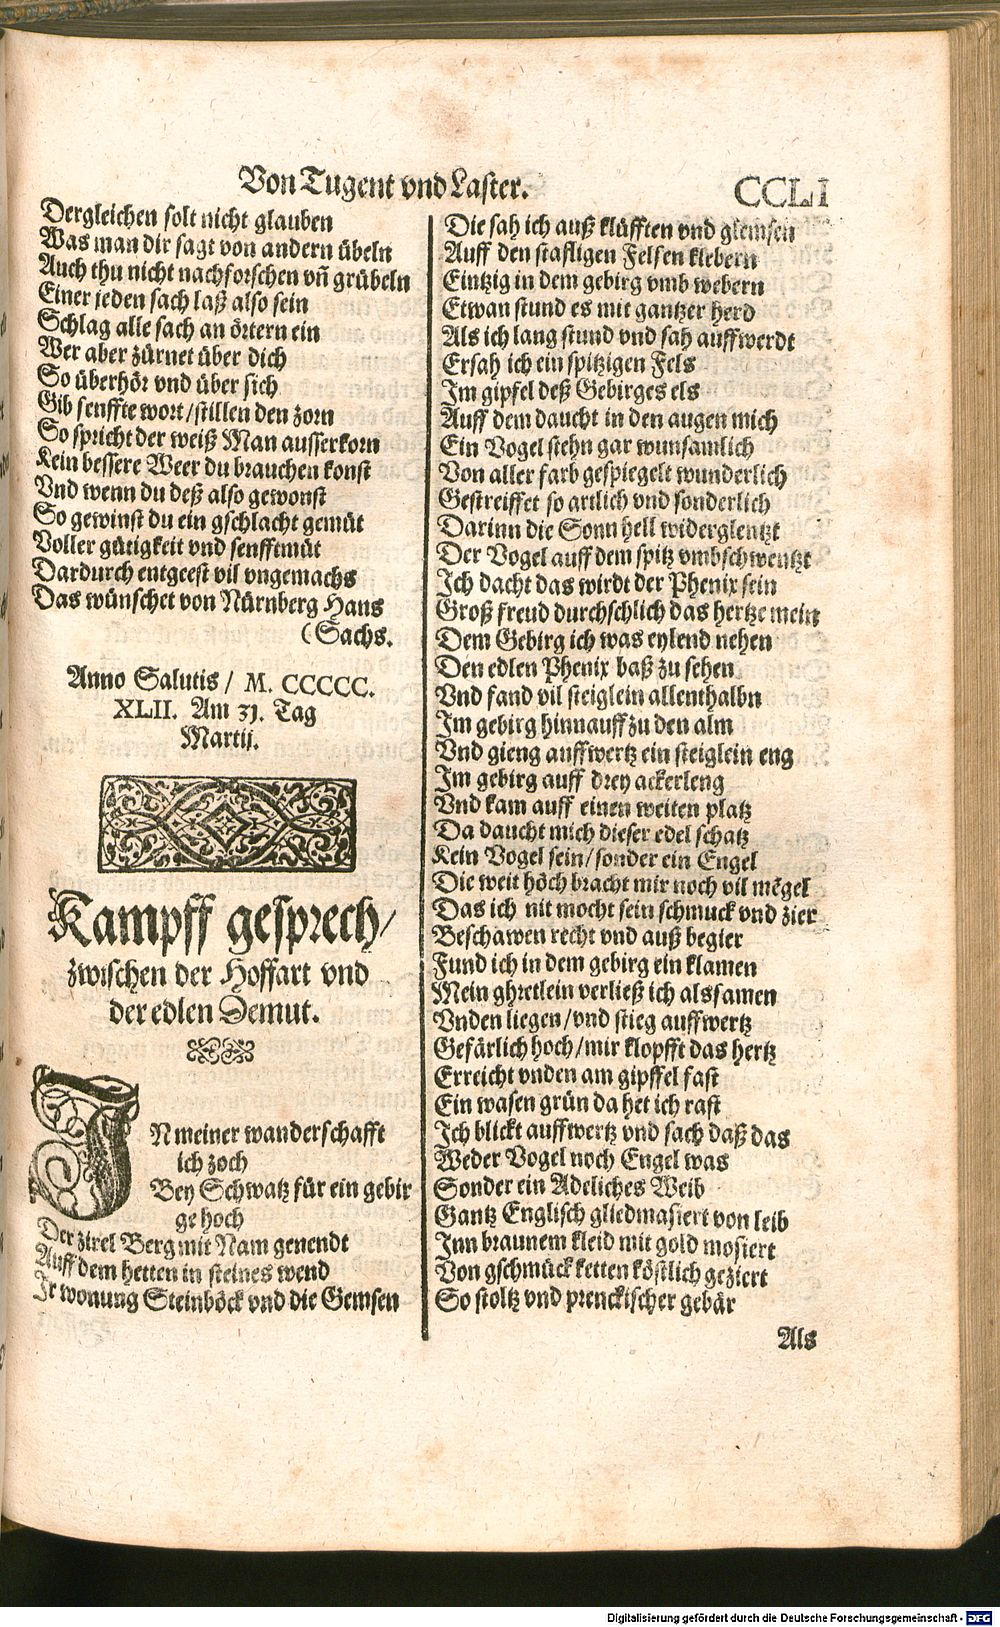 Von Tugent vnd Laster.
CCLI
Dergleichen solt nicht glauben
Was man dir sagt von andern übeln
Auch thu nicht nachforschen vñ grübeln
Einer jeden sach laß also sein
Schlag alle sach an örtern ein
Wer aber zürnet über dich
So überhör vnd über sich
Gib senffte wort/stillen den zorn
So spricht der weiß Man ausserkorn
Kein bessere Weer du brauchen konst
Vnd wenn du deß also gewonst
So gewinst du ein gschlacht gemüt
Voller gütigkeit vnd senfftmüt
Dardurch entgeest vil vngemachs
Das wünschet von Nürnberg Hans
(Sachs.
Anno Salutis / M. CCCCC.
XLII. Am 31. Tag
Martij.
Kampff gesprech/
zwischen der Hoffart vnd
der edlen Demut.
IN meiner wanderschafft
ich zoch
Bey Schwatz für ein gebir
ge hoch
Der zirel Berg mit Nam genendt
Auff dem hetten in steines wend
Ir wonung Steinböck vnd die Gemsen
Die sah ich auß klüfften vnd glemsen
Auff den stafligen Felsen klebern
Eintzig in dem gebirg vmb webern
Etwan stund es mit gantzer herd
Als ich lang stund vnd sah auffwerdt
Ersah ich ein spitzigen Fels
Im gipfel deß Gebirges els
Auff dem daucht in den augen mich
Ein Vogel stehn gar wunsamlich
Von aller farb gespiegelt wunderlich
Gestreiffet so artlich vnd sonderlich
Darinn die Sonn hell widerglentzt
Der Vogel auff dem spitz vmbschwentzt
Ich dacht das wirdt der Phenix sein
Groß freud durchschlich das hertze mein
Dem Gebirg ich was eylend nehen
Den edlen Phenix baß zu sehen
Vnd fand vil steiglein allenthalbn
Im gebirg hinnauff zu den alm
Vnd gieng auffwertz ein steiglein eng
Im gebirg auff drey ackerleng
Vnd kam auff einen weiten platz
Da daucht mich dieser edel schatz
Kein Vogel sein/sonder ein Engel
Die weit höch bracht mir noch vil mẽgel
Das ich nit mocht sein schmuck vnd zier
Beschawen recht vnd auß begier
Fund ich in dem gebirg ein klamen
Mein ghretlein verließ ich alssamen
Vnden liegen/vnd stieg auffwertz
Gefärlich hoch/mir klopfft das hertz
Erreicht vnden am gipffel fast
Ein wasen grün da het ich rast
Ich blickt auffwertz vnd sach daß das
Weder Vogel noch Engel was
Sonder ein Adeliches Weib
Gantz Englisch gliedmasiert von leib
Inn braunem kleid mit gold mosiert
Von gschmück ketten köstlich geziert
So stoltz vnd prenckischer gebär
Als
Digitalisierung gefördert durch die Deutsche Forschungsgemeinschaft - DFG